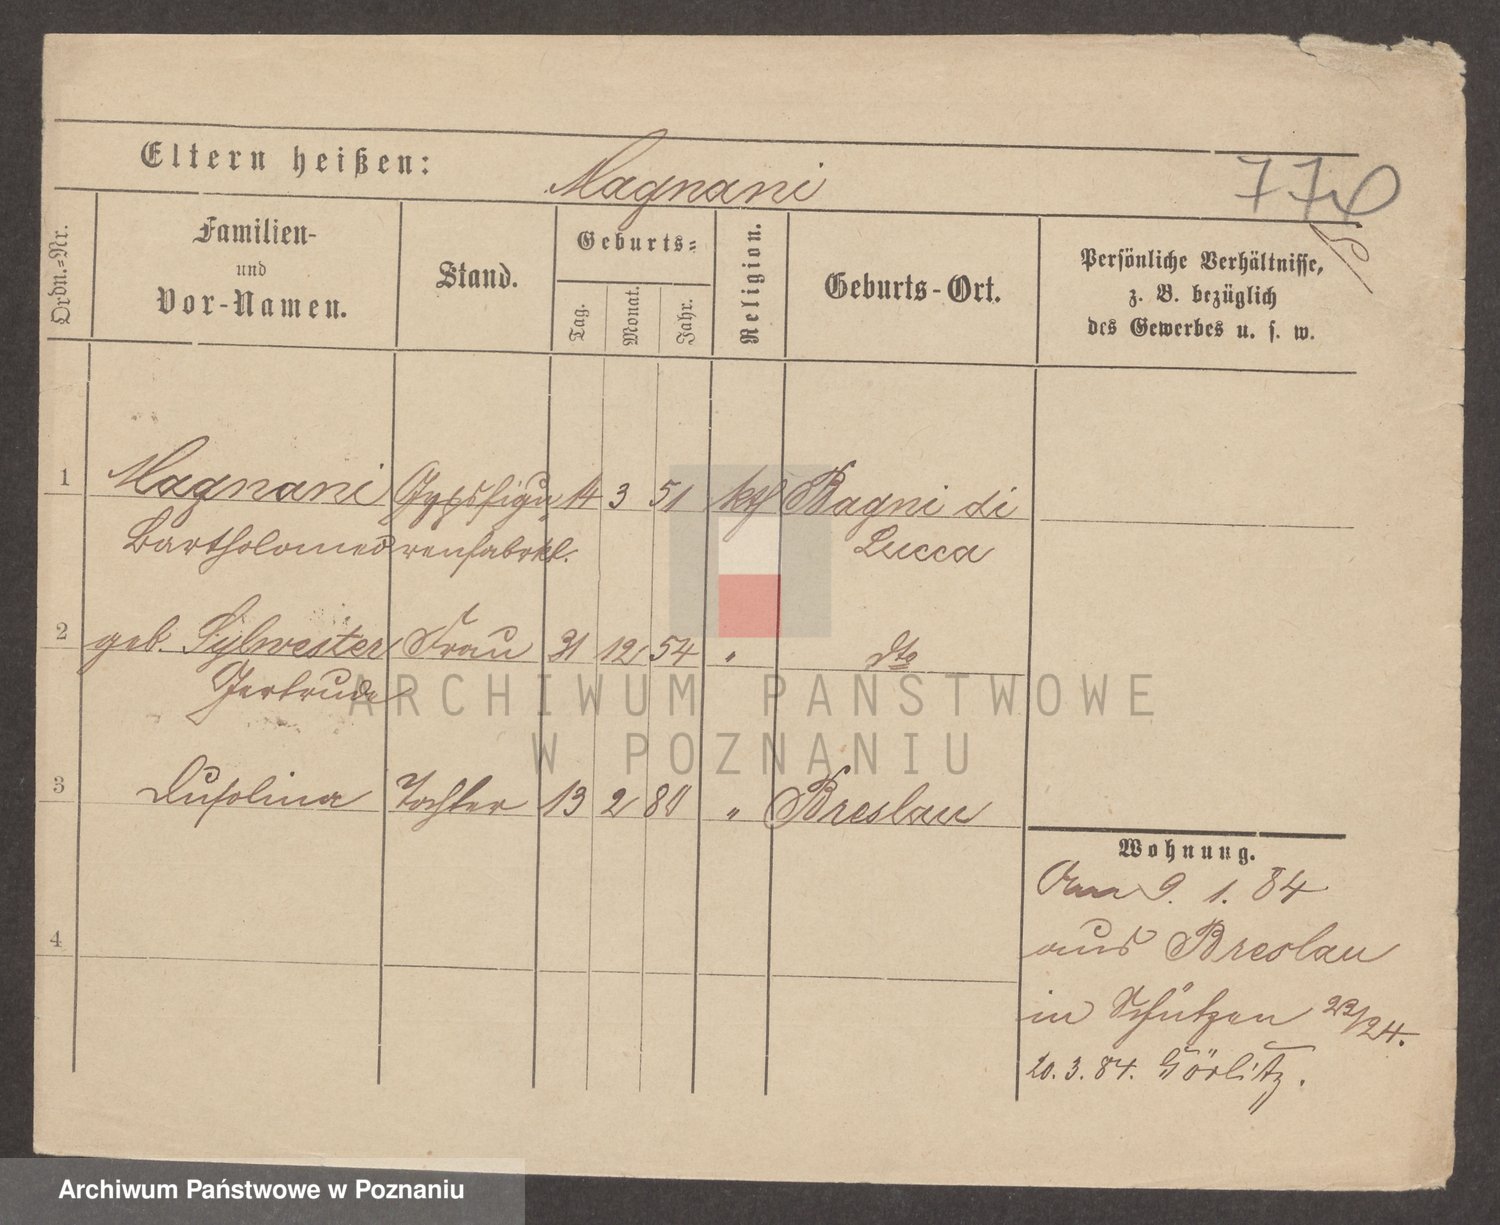 Eltern heißen: Magnani
Ordn.-Nr.
Familien-
und
Vor-Namen.
Stand.
Geburts-
Tag.
Monat.
Jahr.
Religion.
Geburts-Ort.
Persönliche Verhältnisse,
z. B. bezüglich
des Gewerbes u. s. w.
1 Magnani Gypsfigu 14 3 51 kth Bagni di
Bartholomeo renfabrkt. Lucca
2 geb. Sylwester Frau 31 12 54 " dto
Gertrude
3 Dusolina Tochter 13 2 80 " Breslau
4
Wohnung.
9. 1. 84
aus Breslau
in Schützen 23/24.
20. 3. 84. Görlitz.
ARCHIWUM PAŃSTWOWE
W POZNANIU
Archiwum Państwowe w Poznaniu